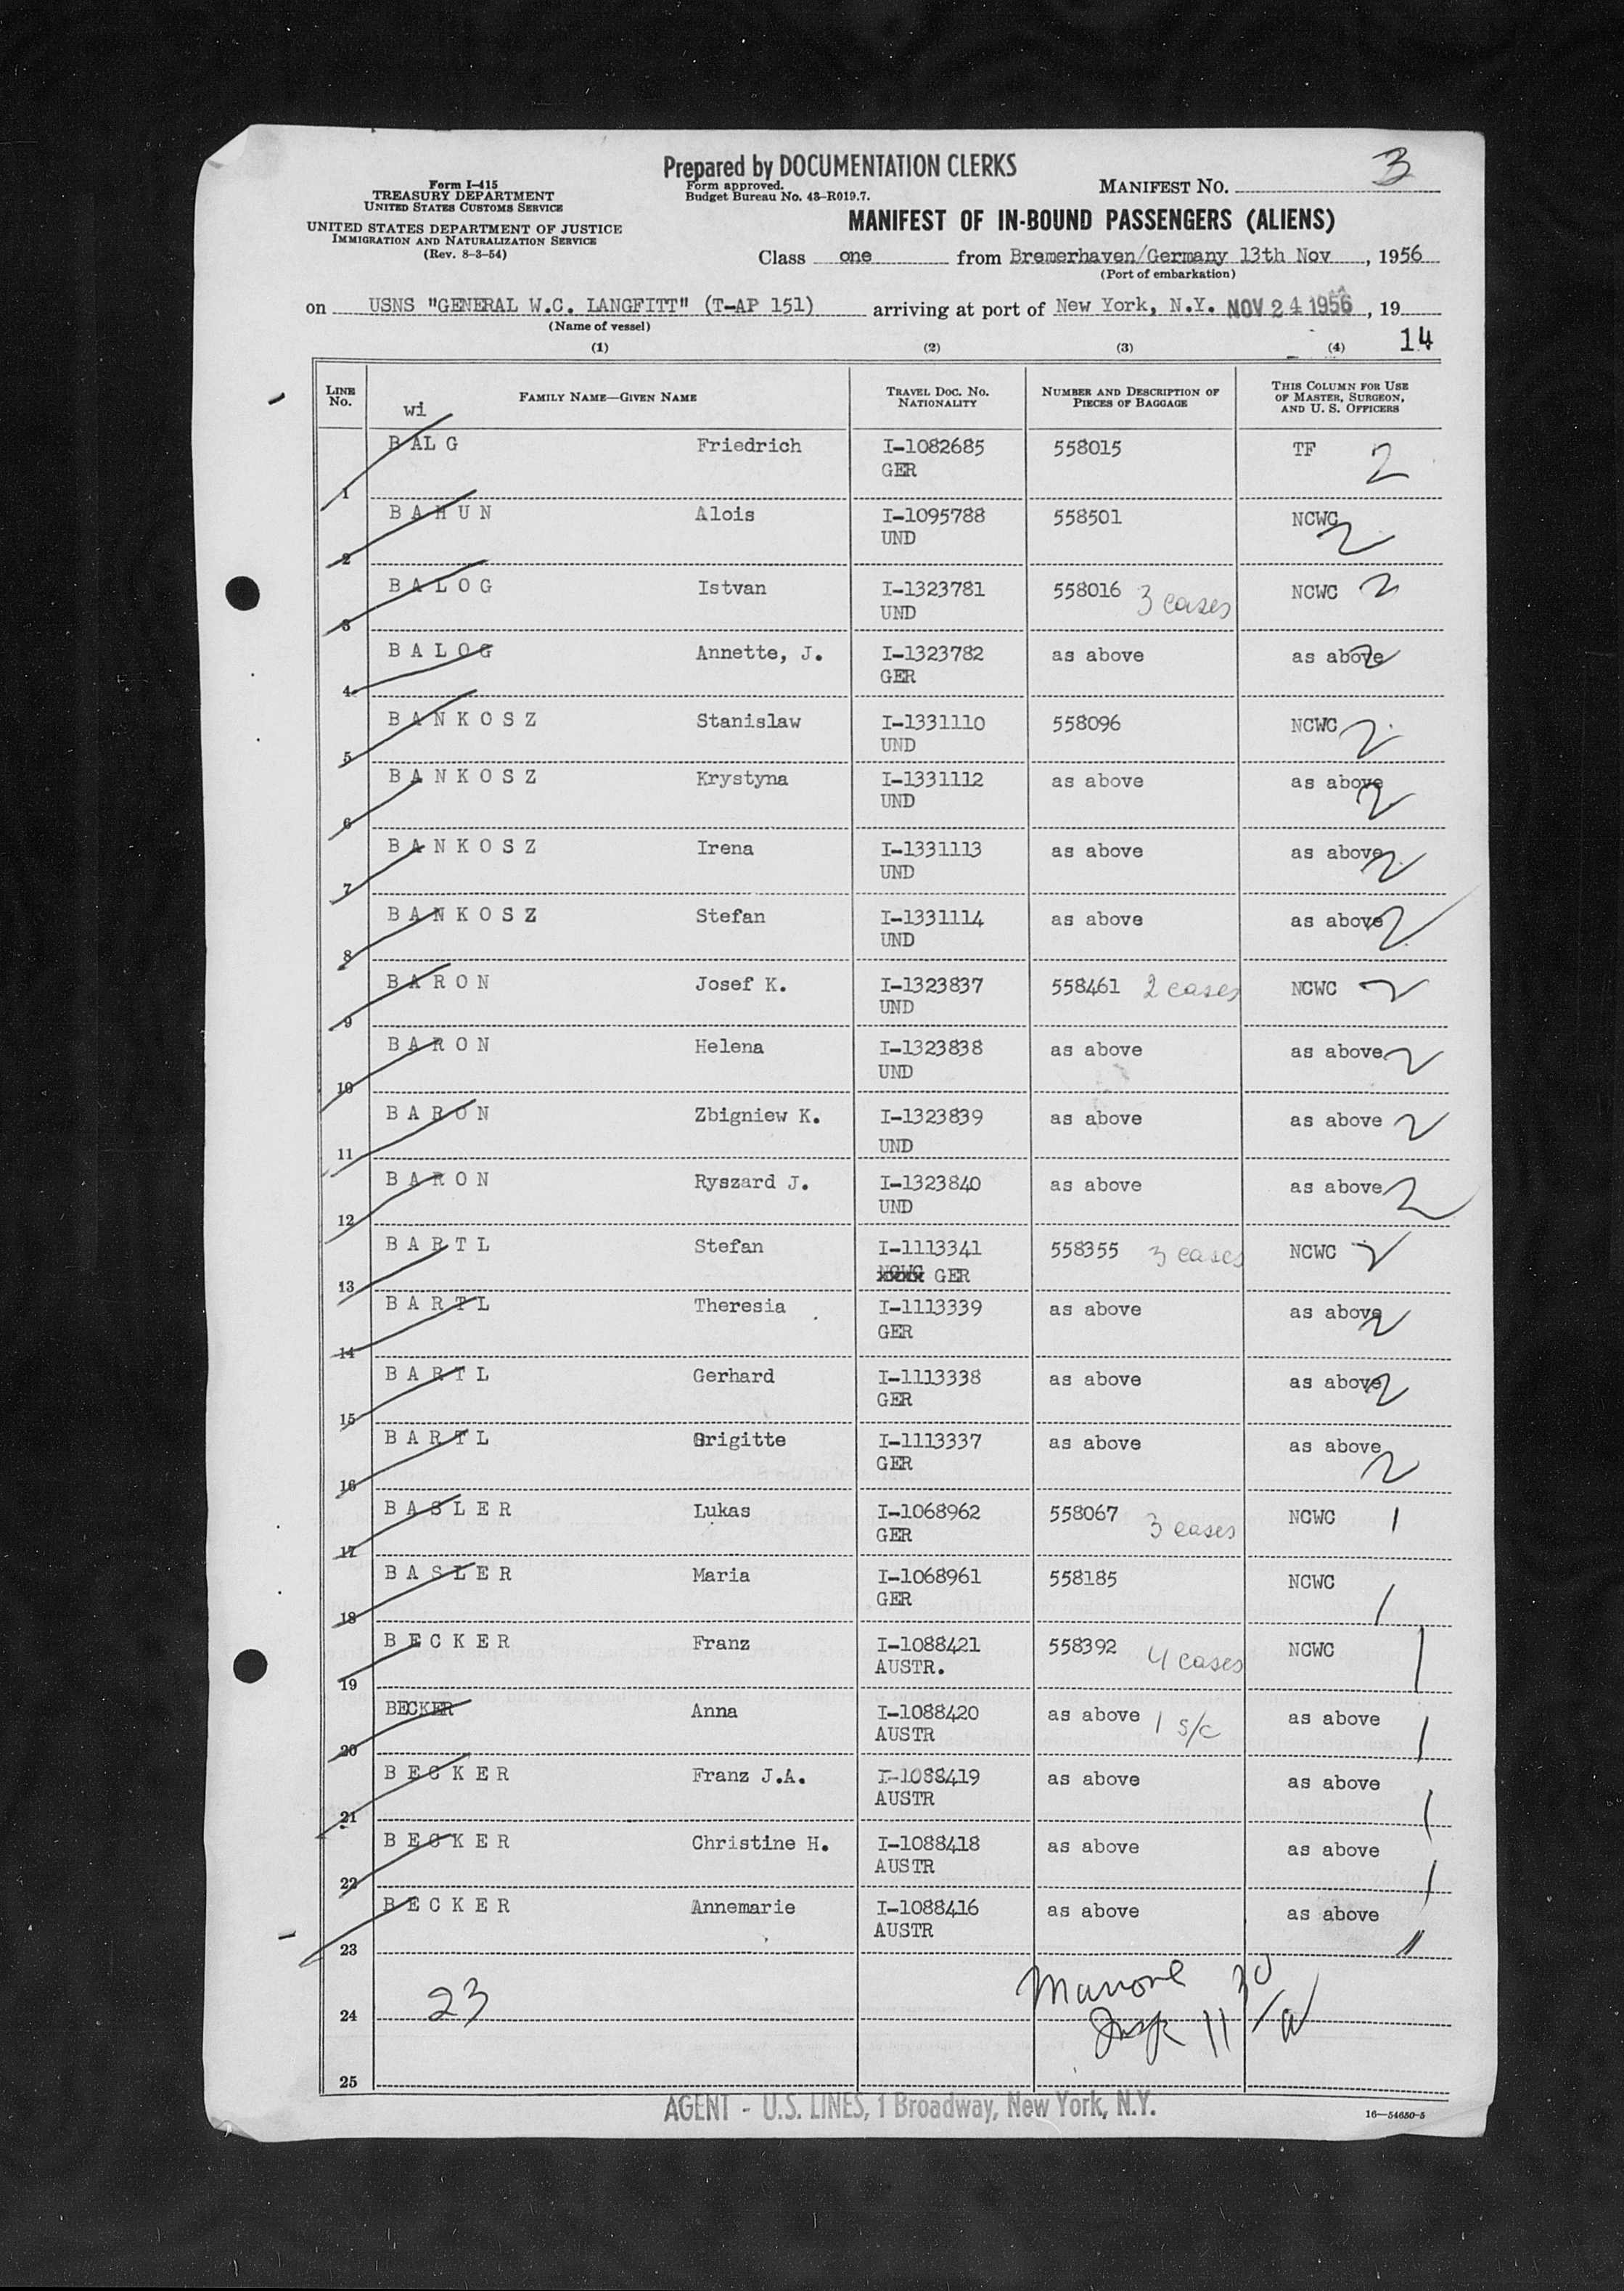 Prepared by DOCUMENTATION CLERKS
Form approved.
Budget Bureau No. 43-R019.7.
Form I-415
TREASURY DEPARTMENT
UNITED STATES CUSTOMS SERVICE
UNITED STATES DEPARTMENT OF JUSTICE
IMMIGRATION AND NATURALIZATION SERVICE
(Rev. 8-3-54)
MANIFEST NO. 3
MANIFEST OF IN-BOUND PASSENGERS (ALIENS)
Class one from Bremerhaven/Germany 13th Nov, 1956
(Port of embarkation)
on USNS "GENERAL W.C. LANGFITT" (T-AP 151) arriving at port of New York, N.Y. NOV 24 1956, 19
(Name of vessel)
(1) (2) (3) (4) 14
LINE No. FAMILY NAME—GIVEN NAME TRAVEL DOC. NO. NATIONALITY NUMBER AND DESCRIPTION OF PIECES OF BAGGAGE THIS COLUMN FOR USE OF MASTER, SURGEON, AND U. S. OFFICERS
wi
B AL G Friedrich I-1082685 558015 TF 2
1 GER
B A H U N Alois I-1095788 558501 NCWC 2
2 UND
B A L O G Istvan I-1323781 558016 3 cases NCWC 2
3 UND
B A L O G Annette, J. I-1323782 as above as above 2
4 GER
B A N K O S Z Stanislaw I-1331110 558096 NCWC 2
5 UND
B A N K O S Z Krystyna I-1331112 as above as above 2
6 UND
B A N K O S Z Irena I-1331113 as above as above 2
7 UND
B A N K O S Z Stefan I-1331114 as above as above 2
8 UND
B A R O N Josef K. I-1323837 558461 2 cases NCWC 2
9 UND
B A R O N Helena I-1323838 as above as above 2
10 UND
B A R O N Zbigniew K. I-1323839 as above as above 2
11 UND
B A R O N Ryszard J. I-1323840 as above as above 2
12 UND
B A R T L Stefan I-1113341 558355 3 cases NCWC 2
13 GER
B A R T L Theresia I-1113339 as above as above 2
14 GER
B A R T L Gerhard I-1113338 as above as above 2
15 GER
B A R T L Brigitte I-1113337 as above as above 2
16 GER
B A S L E R Lukas I-1068962 558067 3 cases NCWC 1
17 GER
B A S L E R Maria I-1068961 558185 NCWC 1
18 GER
B E C K E R Franz I-1088421 558392 4 cases NCWC 1
19 AUSTR.
BECKER Anna I-1088420 as above 1 s/c as above 1
20 AUSTR
B E C K E R Franz J.A. I-1088419 as above as above 1
21 AUSTR
B E C K E R Christine H. I-1088418 as above as above 1
22 AUSTR
B E C K E R Annemarie I-1088416 as above as above 11
23 AUSTR
23
24
25
AGENT - U.S. LINES, 1 Broadway, New York, N.Y.
16—54650-5